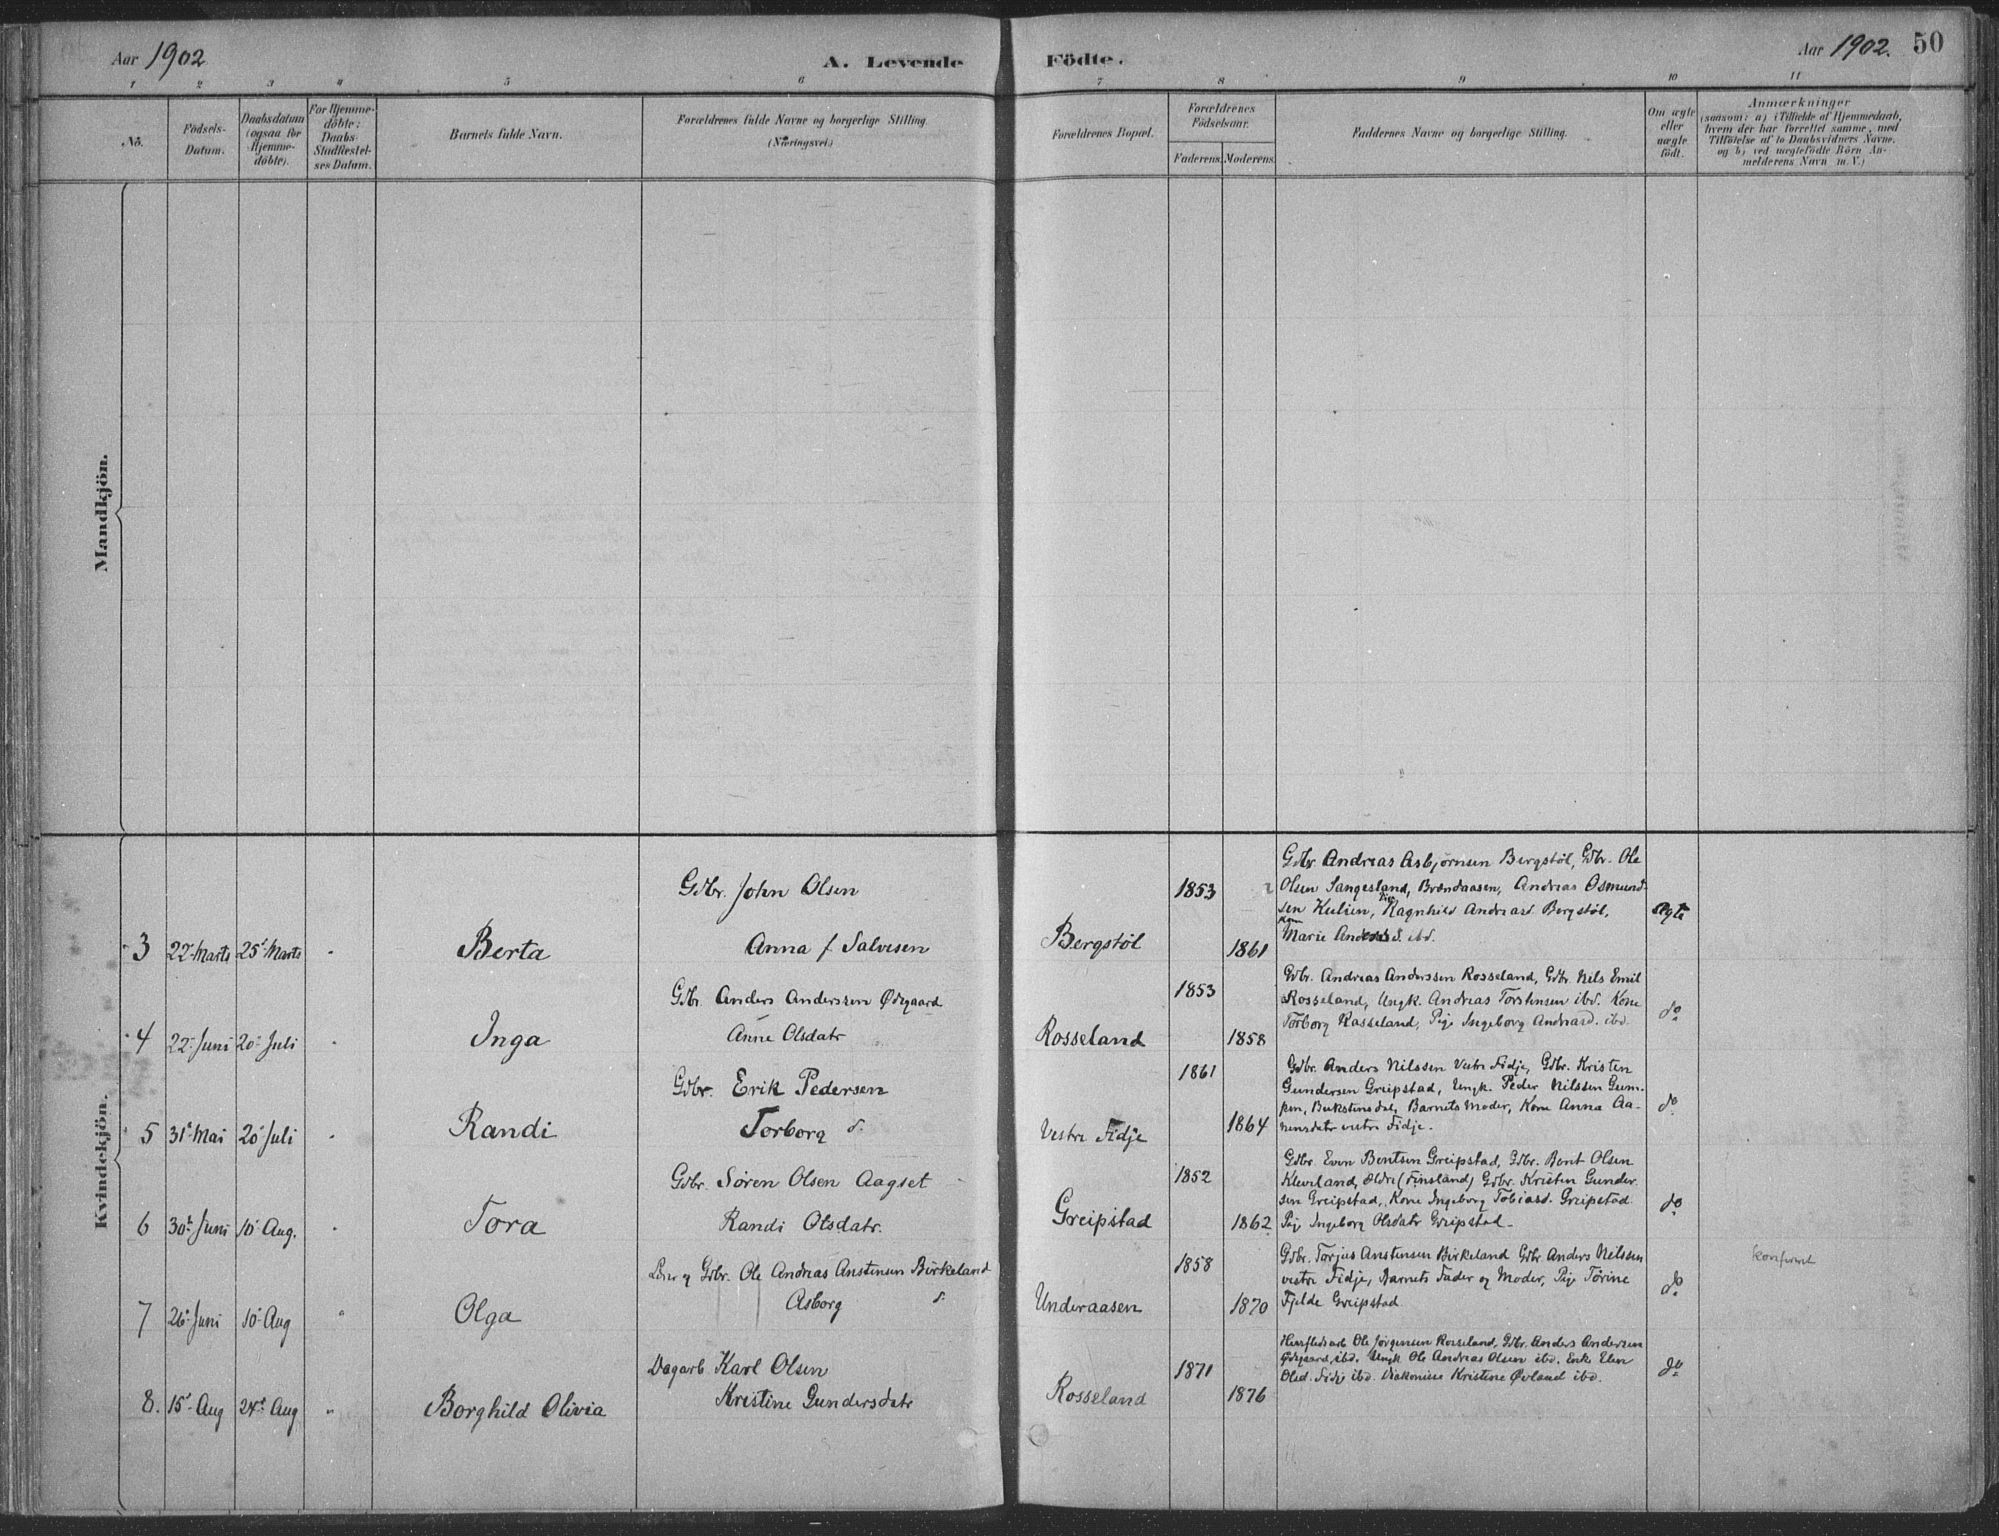 Aar 1902
A. Levende Födte.
Aar 1902. 50
1 2 3 4 5 6 7 8 9 10 11
No.
Födsels-
Datum.
Daabsdatum
(ogsaa for
Hjemme-
döbte).
For Hjemme-
döbte:
Daabs-
Stadfæstel-
ses Datum.
Barnets fulde Navn.
Forældrenes fulde Navne og borgerlige Stilling
(Næringsvei.)
Forældrenes Bopæl.
Forældrenes
Födselsaar.
Faderens. Moderens.
Faddernes Navne og borgerlige Stilling.
Om ægte
eller
uægte
födt.
Anmærkninger
(saasom: a) i Tilfælde af Hjemmedaab,
hvem der har forrettet samme, med
Tilföielse af to Daabsvidners Navne.
og b) ved uægtefödte Börn An-
melderens Navn m. V.)
Mandkjön.
Kvindekjön.
3 22 Marts 25 Marts " Berta
Gdbr. John Olsen
Anna f. Salvesen
Bergstøl
1853
1861
Gdbr Andreas Asbjørnsen Bergstøl, Gdbr. Ole
Olsen Sangesland, Brændaasen, Andreas Osmund-
sen Kulien, Pige Ragnhild Andreasd. Bergstøl,
Kone Marie ibd.
ægte
4 22 Juni 20 Juli " Inga
Gdbr. Anders Anderssen Ødegaard
Anne Olsdatr
Rosseland
1853
1858
Gdbr. Andreas Anderssen Rosseland, Gdbr. Nils Emil
Rosseland, Ungk. Andreas Torstensen ibd. Kone
Torborg Rosseland, Pige Ingeborg Andreasd. ibd.
do
5 31 Mai 20 Juli " Randi
Gdbr. Erik Pedersen
Torborg
Vestre Fidje
1861
1864
Gdbr. Anders Nilssen Vestre Fidje, Gdbr. Kristen
Gundersen Greipstad, Ungk. Peder Nilssen
Barnets Moder, Kone Anna Aa-
nensdatr vestre Fidje.
do
6 30 Juni 10 Aug. " Tora
Gdbr. Søren Olsen Aagset
Randi Olsdatr.
Greipstad
1852
1862
Gdbr. Even Bentsen Greipstad, Gdbr. Bent Olsen
Kleveland, Øldre (Finsland) Gdbr. Kristen Gunder-
sen Greipstad, Kone Ingeborg Tobiasd. Greipstad
Pige Ingeborg Olsdatr Greipstad.
do
7 26 Juni 10 Aug " Olga
og Gdbr. Ole Andreas Anstensen Birkeland
Asborg
Underaasen
1858
1870
Gdbr. Torjus Anstensen Birkeland Gdbr. Anders Nilssen
vestre Fidje, Barnets Fader og Moder, Pige Tørine
Fjelde Greipstad
do
konfirmt
8. 15 Aug 24 Aug " Borghild Olivia
Dagarb. Karl Olsen
Kristine Gundersdatr
Rosseland
1871
1876
Ole Jørgensen Rosseland, Gdbr. Anders Andersen
Ødegaard, ibd. Ungk Ole Andreas Olsen ibd. Enke Elen
Olsd. Fidje ibd. Diakonisse Kristine Øvland ibd.
do